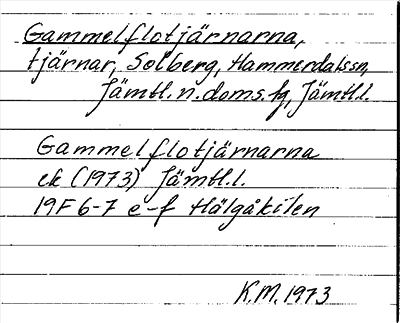 Gammelflotjärnarna,
tjärnar, Solberg, Hammerdalssn,
Jämtl. n. doms. fg, Jämtl.l.
Gammelflotjärnarna
ek (1973) Jämtl.l.
19F 6-7 e-f Hälgåkilen
K.M. 1973